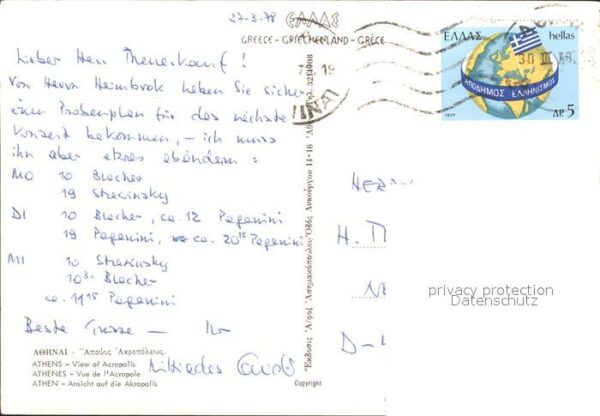 27-3-78
ΕΛΛΑΣ
GREECE - GRIECHENLAND - GRÈCE
Lieber Herr
Von Herrn Heimbrok haben Sie sicher
einen Probenplan für das nächste
Konzert bekommen, - ich muss
ihn aber etwas abändern :
MO 10 Blacher
19 Strawinsky
DI 10 Blacher, ca. 12 Paganini
19 Paganini, ca. 20 15 Paganini
MI 10 Strawinsky
10 30 Blacher
ca. 11 15 Paganini
Beste Grüsse — Ihr
Miltiades
ΑΘΗΝΑΙ - Ἄποψις Ἀκροπόλεως.
ATHENS - View of Acropolis
ATHENES - Vue de l'Acropole
ATHEN - Ansicht auf die Akropolis
Copyright
ΕΛΛΑΣ hellas
ΑΠΟΔΗΜΟΣ ΕΛΛΗΝΙΣΜΟΣ
1977 ΔΡ 5
30 III 78
HERR
H.
D-
privacy protection
Datenschutz